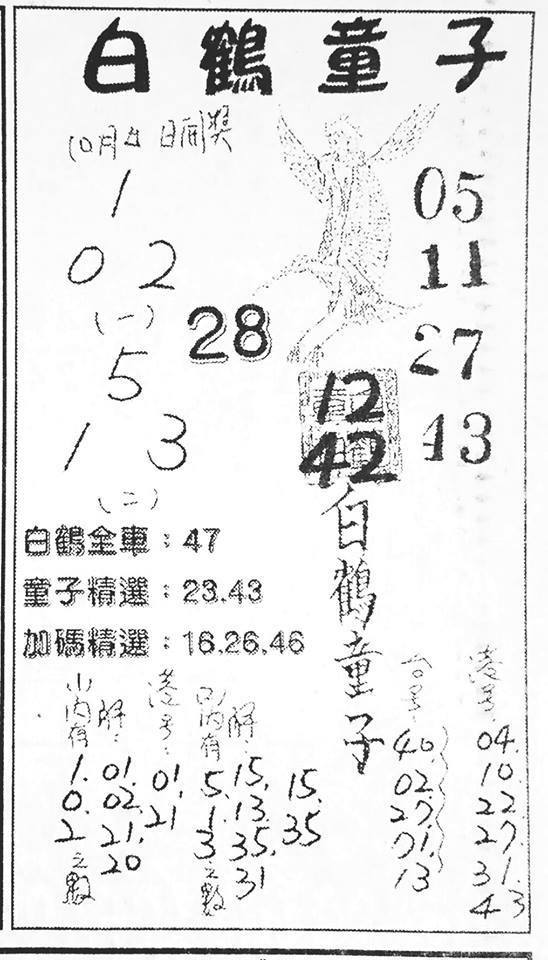 白鶴童子
10月4日開獎
1
0 2
(一)
5
1 3
(二)
28
05
11
27
43
12
42
白鶴全車：47
童子精選：23.43
加碼精選：16.26.46
白鶴童子
(一)內有
1.
0.
2
之數
解：
01.
02.
21.
20
港號：
01.
21
(二)內有
5.
1.
3
之數
解：
15.
13.
35.
31
15.
35
40.
02.
27.
71.
13
港號：
04.
10.
22.
27.
31.
43